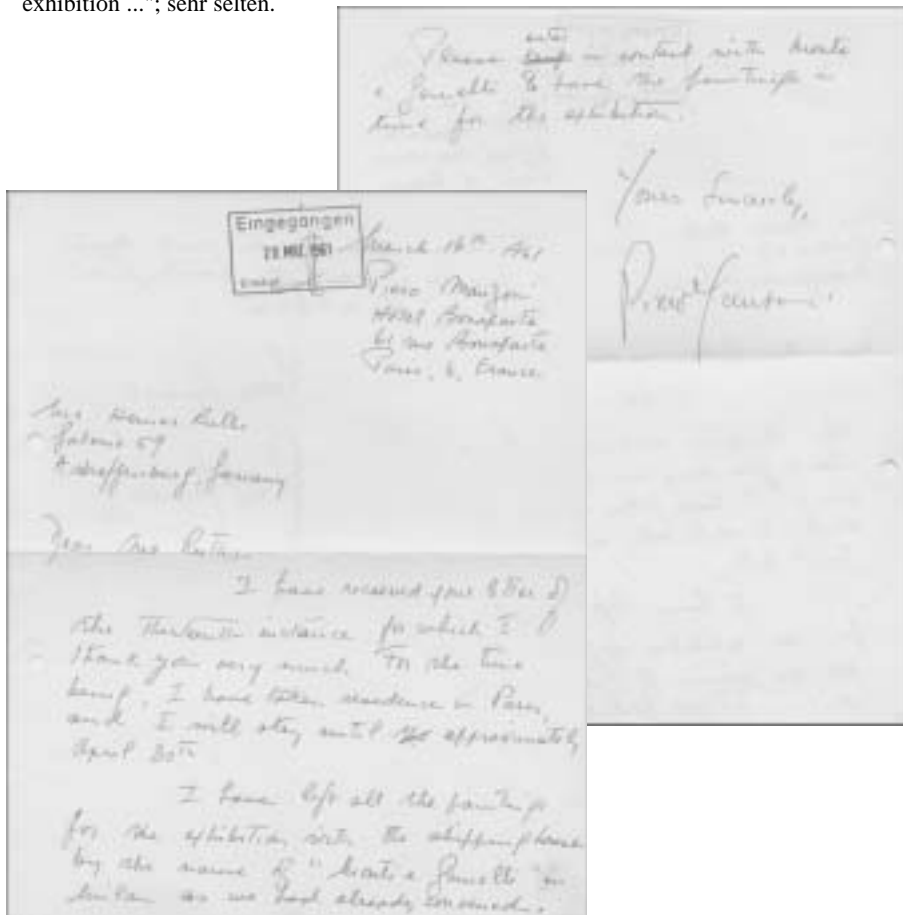 exhibition ..."; sehr selten.
Please enter in contact with
to have the paintings in
time for the exhibition.
Yours Sincerely,
Piero Manzoni
Eingegangen
1961
March 16th 1961
Piero Manzoni
Hotel Bonaparte
61 rue Bonaparte
Paris, 6, France.
59
Aschaffenburg, Germany
Dear
I have received your letter of
the thirteenth instance for which I
thank you very much. For the time
being, I have taken residence in Paris,
and I will stay until approximately
April 30th
I have left all the paintings
for the exhibition with the shipping house
by the name of "
Milan as we had already convened.